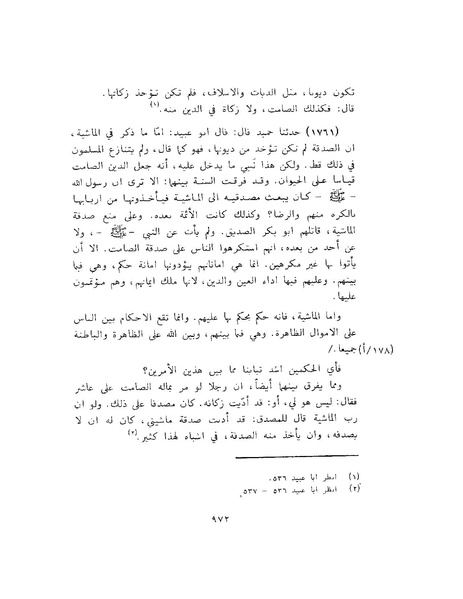 تكون ديونا، مثل الديات والأسلاف، فلم تكن تؤخذ زكاتها.
قال: فكذلك الصامت، ولا زكاة في الدين منه.(١)
(١٧٦١) حدثنا حميد قال: قال ابو عبيد: امّا ما ذكر في الماشية،
ان الصدقة لم تكن تؤخذ من ديونها، فهو كما قال، ولم يتنازع المسلمون
في ذلك قط. ولكن هذا نسي ما يدخل عليه، أنه جعل الدين الصامت
قياسا على الحيوان. وقد فرقت السنة بينهما: الا ترى ان رسول الله
- ﷺ - كان يبعث مصدقيه الى الماشية فيأخذونها من اربابها
بالكره منهم والرضا؟ وكذلك كانت الأئمة بعده. وعلى منع صدقة
الماشية، قاتلهم ابو بكر الصديق. ولم يأت عن النبي - ﷺ -، ولا
عن أحد من بعده، انهم استكرهوا الناس على صدقة الصامت. الا أن
يأتوا بها غير مكرهين. انما هي اماناتهم يؤدونها امانة حكم، وهي فيما
بينهم. وعليهم فيها اداء العين والدين، لانها ملك ايمانهم، وهم مؤتمنون
عليها.
واما الماشية، فانه حكم يحكم بها عليهم. وانما تقع الاحكام بين الناس
على الاموال الظاهرة. وهي فيما بينهم، وبين الله على الظاهرة والباطنة
(١٧٨/أ) جميعا./
فأي الحكمين اشد تباينا مما بين هذين الأمرين؟
ومما يفرق بينهما أيضاً، ان رجلا لو مر بماله الصامت على عاشر
فقال: ليس هو لي، أو: قد أدّيت زكاته. كان مصدقا على ذلك. ولو ان
رب الماشية قال للمصدق: قد أديت صدقة ماشيتي، كان له ان لا
يصدقه، وان يأخذ منه الصدقة، في اشباه لهذا كثير.(٢)
(١) انظر ابا عبيد ٥٣٦.
(٢) انظر ابا عبيد ٥٣٦ - ٥٣٧.
٩٧٢